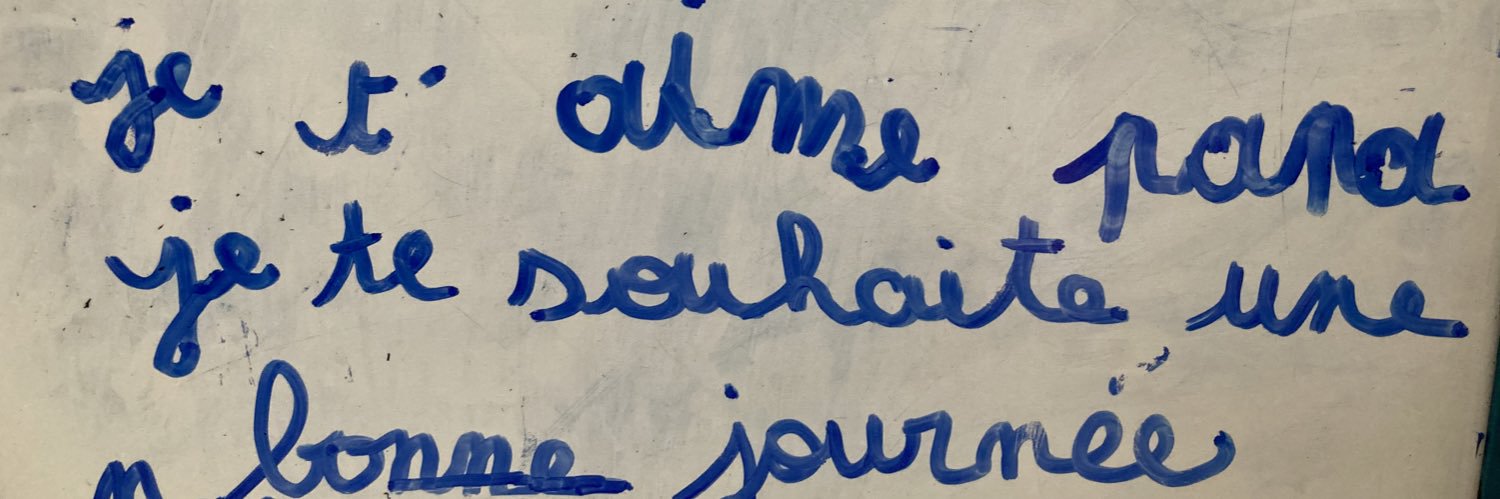 je t' aime papa
je te souhaite une
bonne journée